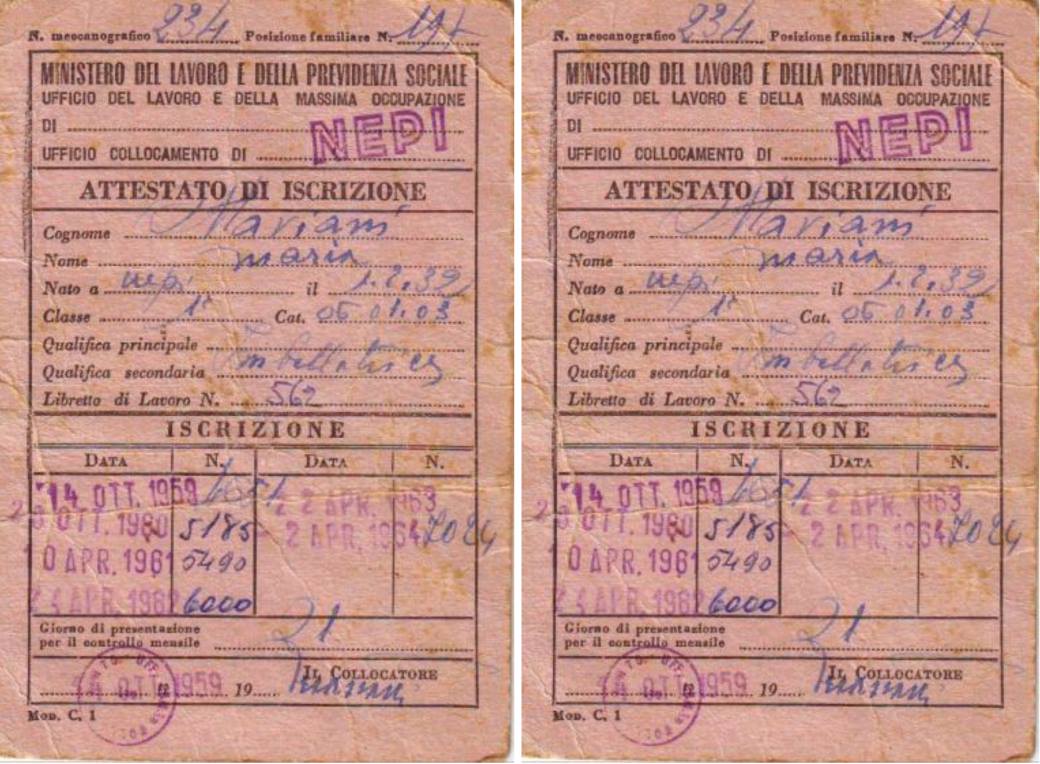 N. meccanografico 234 Posizione familiare N.
MINISTERO DEL LAVORO E DELLA PREVIDENZA SOCIALE
UFFICIO DEL LAVORO E DELLA MASSIMA OCCUPAZIONE
DI
NEPI
UFFICIO COLLOCAMENTO DI
ATTESTATO DI ISCRIZIONE
Cognome Mariani
Nome maria
Nato a nepi il 1.2.39
Classe 1ª Cat. 05 01.03
Qualifica principale
Qualifica secondaria
Libretto di Lavoro N. 562
ISCRIZIONE
DATA N. DATA N.
14 OTT. 1959 2 2 APR. 1963
OTT. 1960 5185 2 APR. 1964 7024
0 APR. 1961 5490
APR. 1962 6000
Giorno di presentazione
per il controllo mensile 21
IL COLLOCATORE
OTT 1959 19
MOD. C. 1
N. meccanografico 234 Posizione familiare N.
MINISTERO DEL LAVORO E DELLA PREVIDENZA SOCIALE
UFFICIO DEL LAVORO E DELLA MASSIMA OCCUPAZIONE
DI
NEPI
UFFICIO COLLOCAMENTO DI
ATTESTATO DI ISCRIZIONE
Cognome Mariani
Nome maria
Nato a nepi il 1.2.39
Classe 1ª Cat. 05 01.03
Qualifica principale
Qualifica secondaria
Libretto di Lavoro N. 562
ISCRIZIONE
DATA N. DATA N.
14 OTT. 1959 2 2 APR. 1963
OTT. 1960 5185 2 APR. 1964 7024
0 APR. 1961 5490
APR. 1962 6000
Giorno di presentazione
per il controllo mensile 21
IL COLLOCATORE
OTT 1959 19
MOD. C. 1